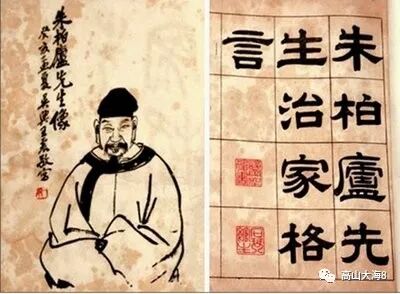 朱柏廬先生像
癸亥孟夏吳興王
朱柏廬先
生治家格
言
高山大海8